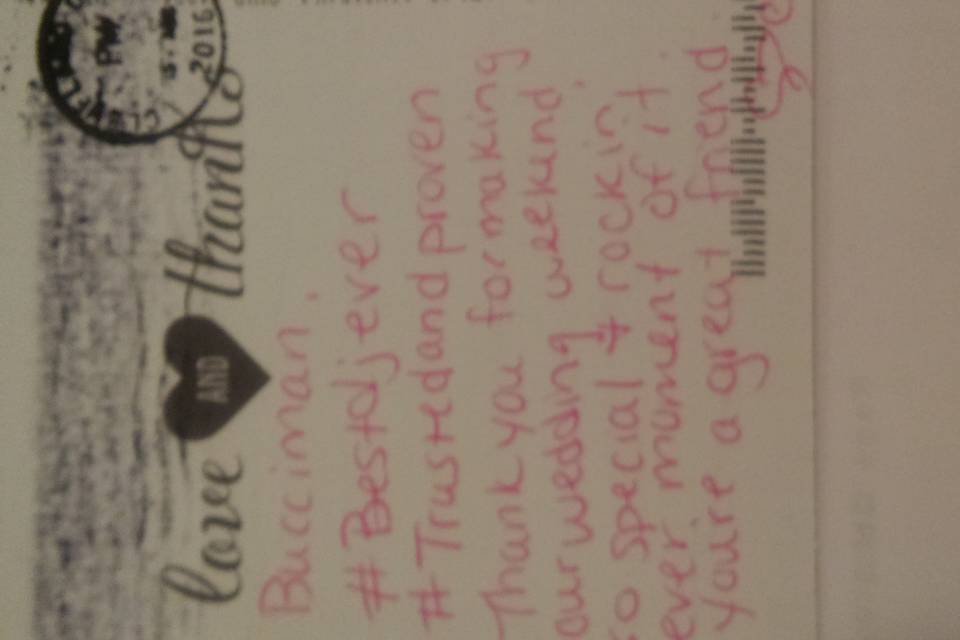 love AND thanks
Bucciman.
#Bestdjever
#Trustedandproven
Thank you for making
our wedding weekend
so special + rockin
ever moment of it.
You're a great friend
PM
2016